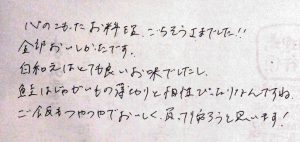 心のこもったお料理、ごちそうさまでした!!
全部おいしかったです。
白和えはとても良いお味でしたし、
鮭はじゃがいも薄切りと相性ぴったりなんですね。
ご飯もつやつやでおいしく、買って帰ろうと思います!